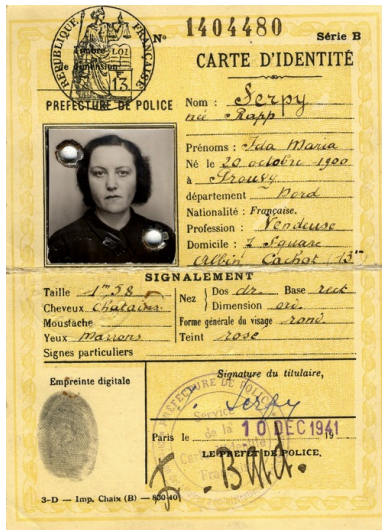 RÉPUBLIQUE FRANÇAISE
Timbre LOI
de dimension
13
Nº 1404480 Série B
CARTE D'IDENTITÉ
PREFECTURE DE POLICE
Nom : Serpy
née Rapp
Prénoms : Ida Maria
Né le 20 octobre 1900
à
département Nord
Nationalité : Française.
Profession : Vendeuse
Domicile : 2 Square
Albin Cachot (13e)
SIGNALEMENT
Taille 1m,58
Cheveux Chatains
Moustache
Yeux Marrons
Signes particuliers
Nez Dos dr. Base rect
Dimension ord.
Forme générale du visage rond.
Teint rose
Empreinte digitale
Signature du titulaire,
Serpy
PRÉFECTURE DE POLICE
Service
de la
Paris le 10 DEC 1941 19
LE PRÉFET DE POLICE,
3-D — Imp. Chaix (B) — 830-40